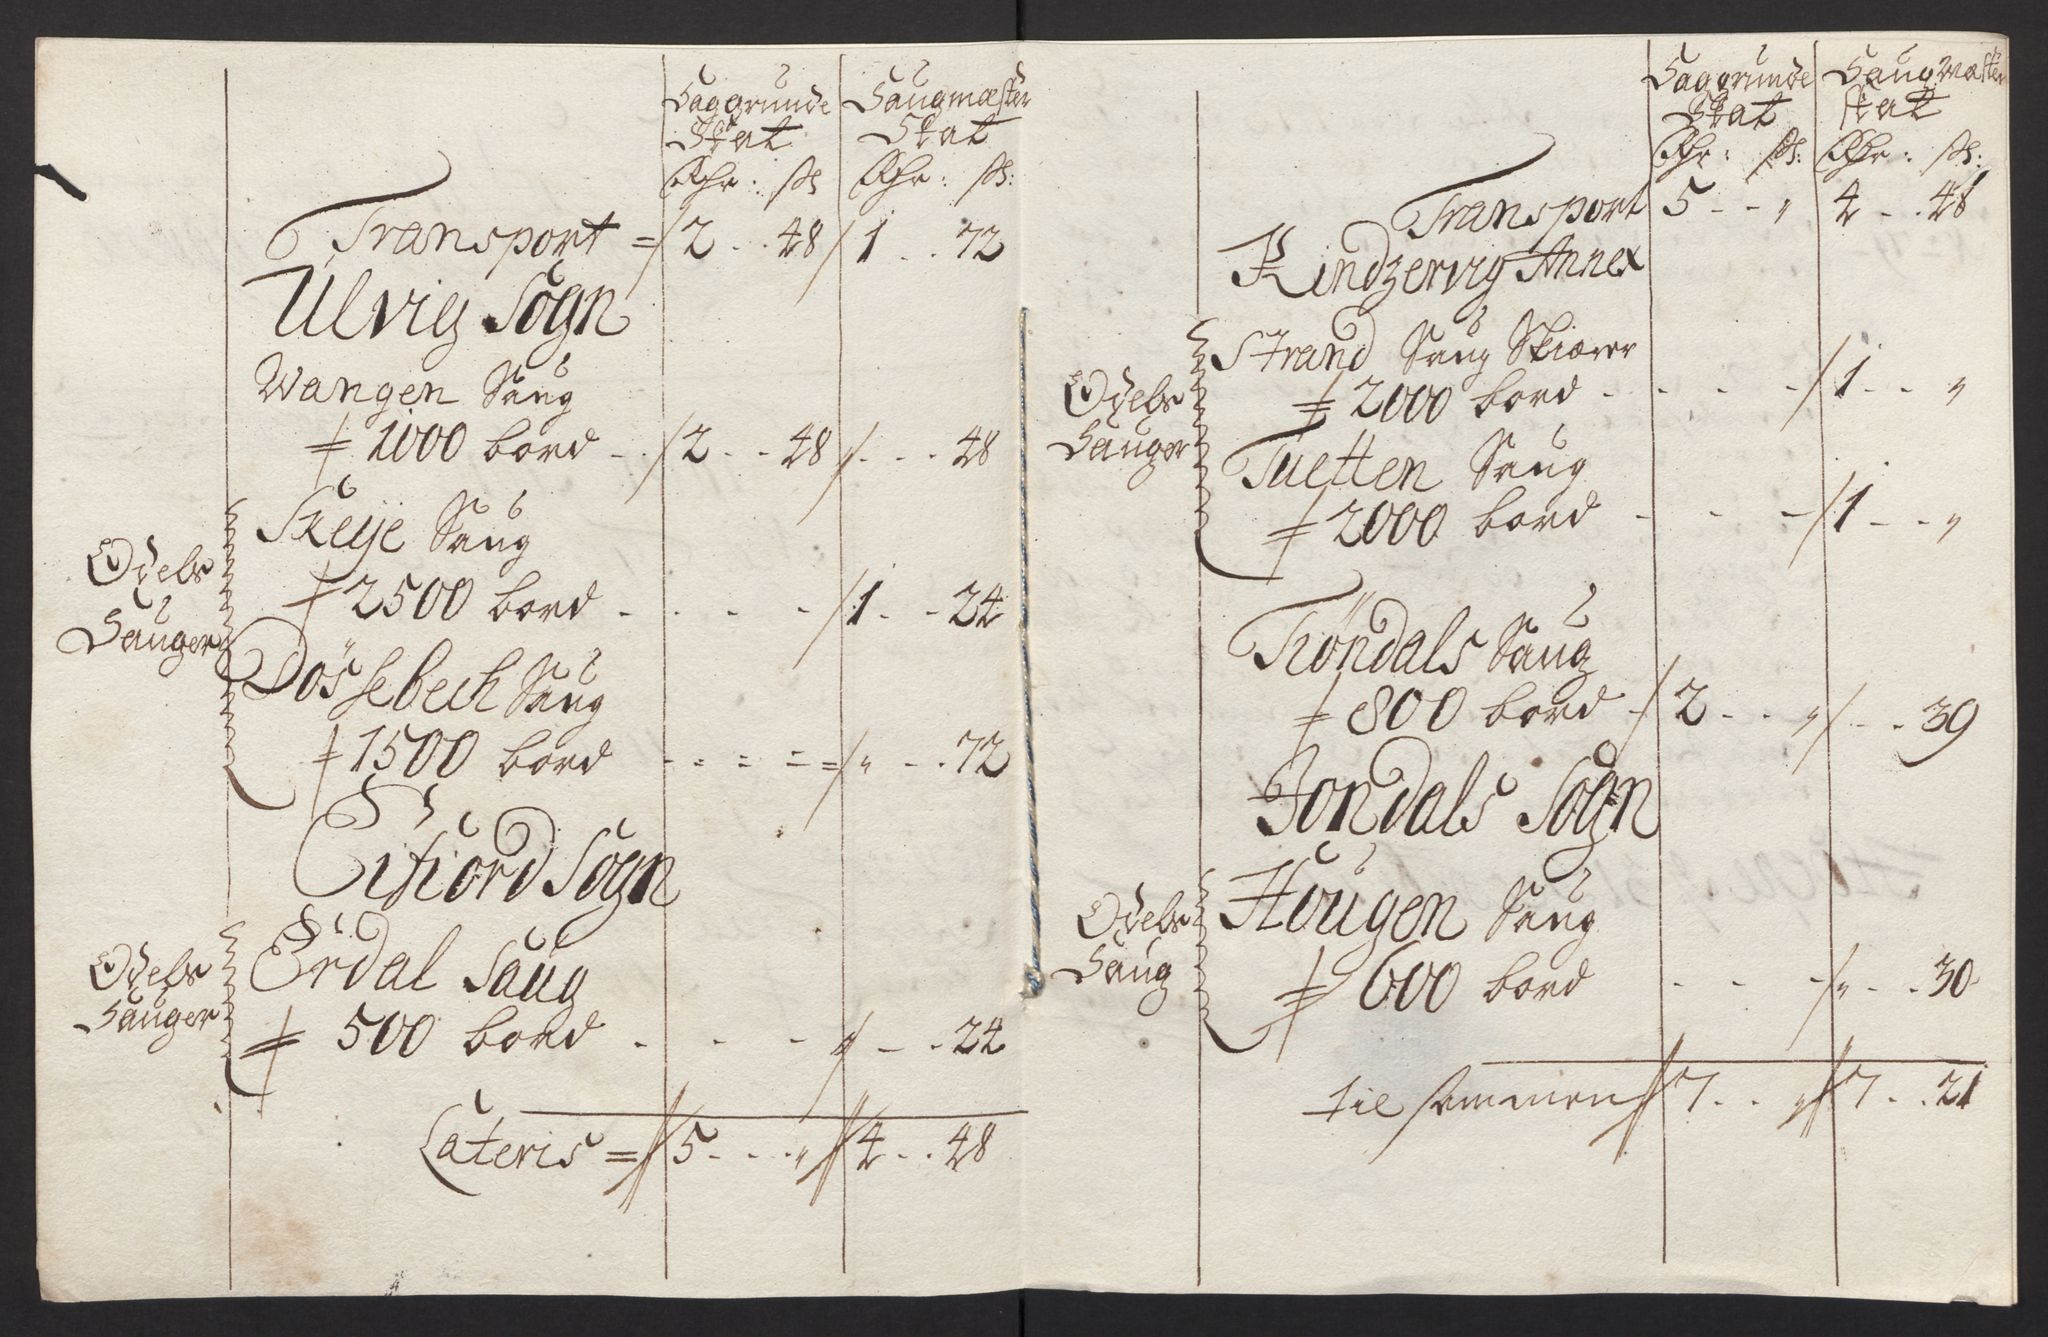 Saggrunde Saugmæster
Skat Skat
Rhr: ß Rhr: ß:
Transport = 2 - - 48 1 - - 72
Ulvig Sogn
Wangen Saug
1000 bord - - 2 - - 48 - - - 48
Skeije Saug
Odels
2500 bord - - - - 1 - - 24
Sauger
Dössebech Saug
1500 bord - = = = = „ - - 72
Eifiord Sogn
Odels Erdal Saug
Sauger
500 bord - - - „ - - 24
Lateris = 5 - - - „ 4 - - 48
Saggrunde Saugmæster
Skat Skat
Rhr: ß: Rhr: ß:
Transport 5 - - „ 4 - - 48
Kindzervig Annex
Strand Saug Skiærer
Odels 2000 bord - - - - 1 - - „
Sauger Tuetten Saug
2000 bord - - - 1 - - „
Tröndals Saug
800 bord - 2 - - „ - - 39
Jondals Sogn
Odels Hougen Saug
Saug
600 bord - - - „ - - 30
til sammen 7 - - „ 7 - - 21